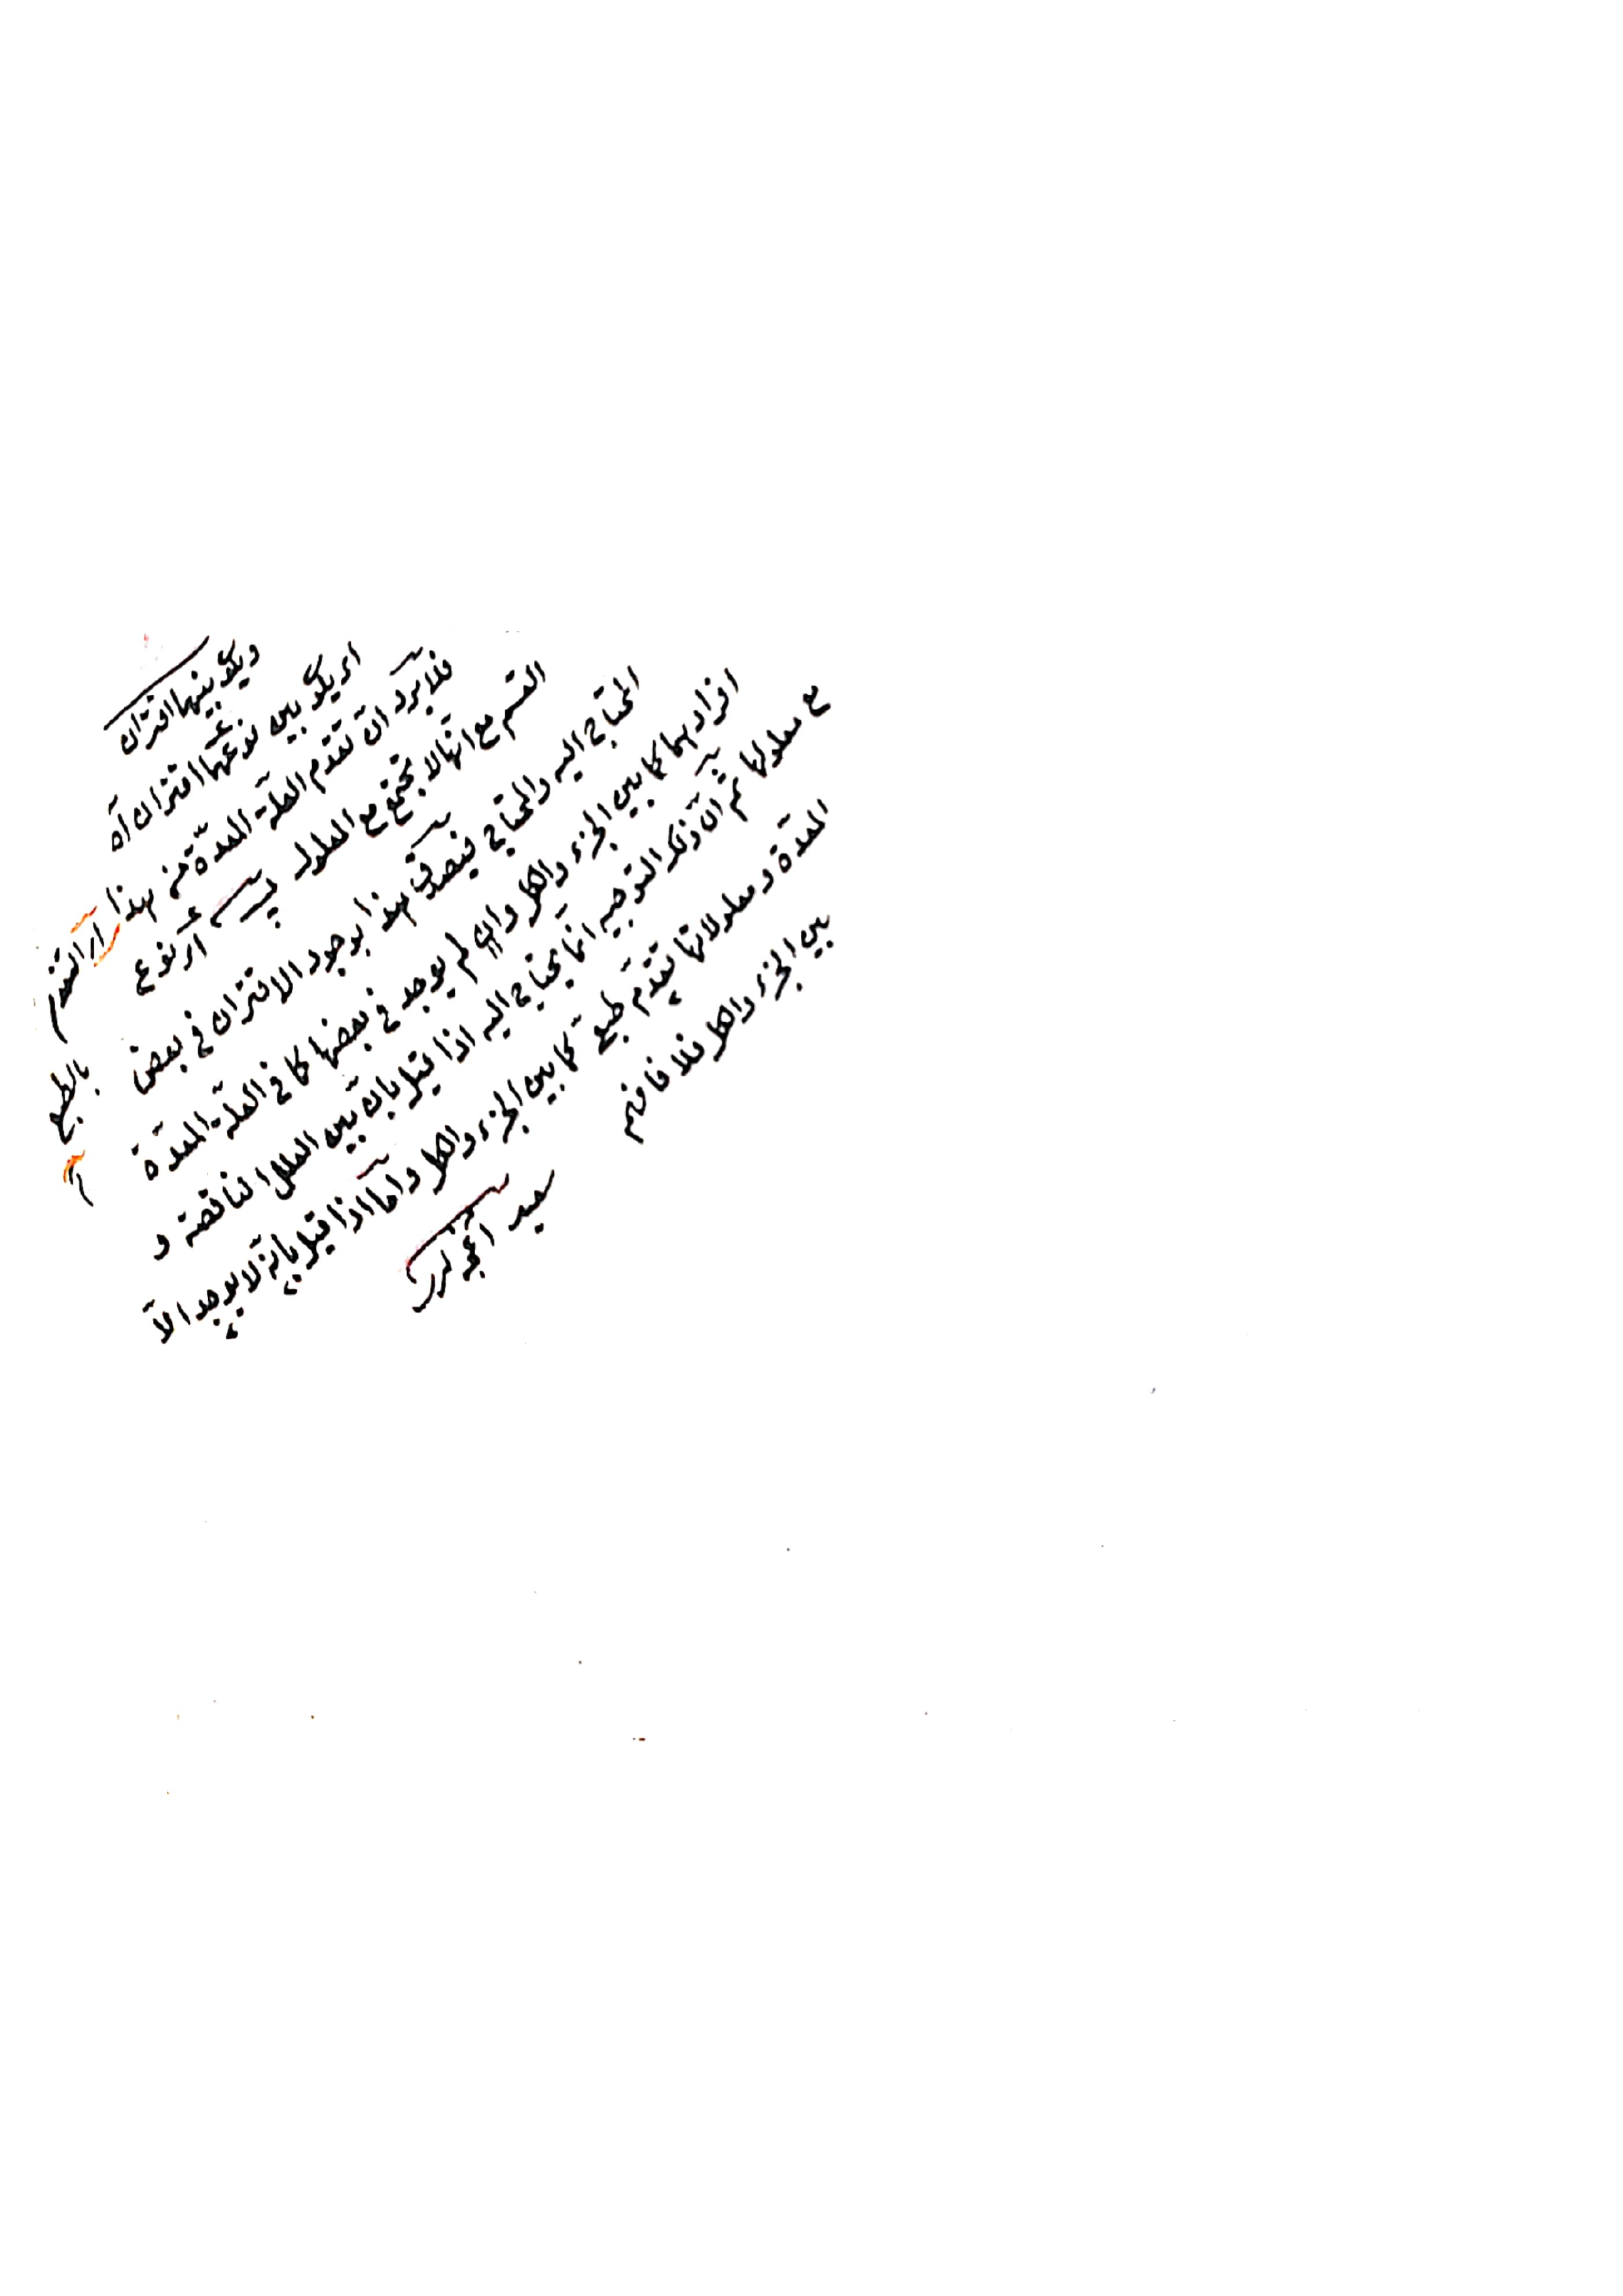 ويكون بينهما اقتران
اى يكون بين نوعيهما اقتران اه
فلا يرد ان تقدم العلة المعدة من هذا القسم
القسم مع انها لا تجتمع مع المعلول اى نوع
المحتاج اليه والمحتاج فيصدق هذا بوجود الاقتران فى بعض
افرادهما كما بين الجزء والكل وان لم يوجد فى بعضها كما فى العلة المعدة
مع معلولها ثم ان ذكر التوجيه انما يحتاج اليه اذا قيل بان بين العلل الناقصة و
المعدة ومعلولاتها تقدم طبعى كما بين الجزء والكل واما اذا قيل بانه لا يوجد الا
بين الجزء والكل فلا فافهم
بالطبع